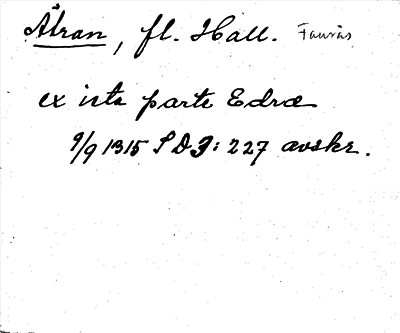 Ätran, fl. Hall. Faurås
ex ista parte Edræ
9/9 1315 S D 3: 227 avskr.